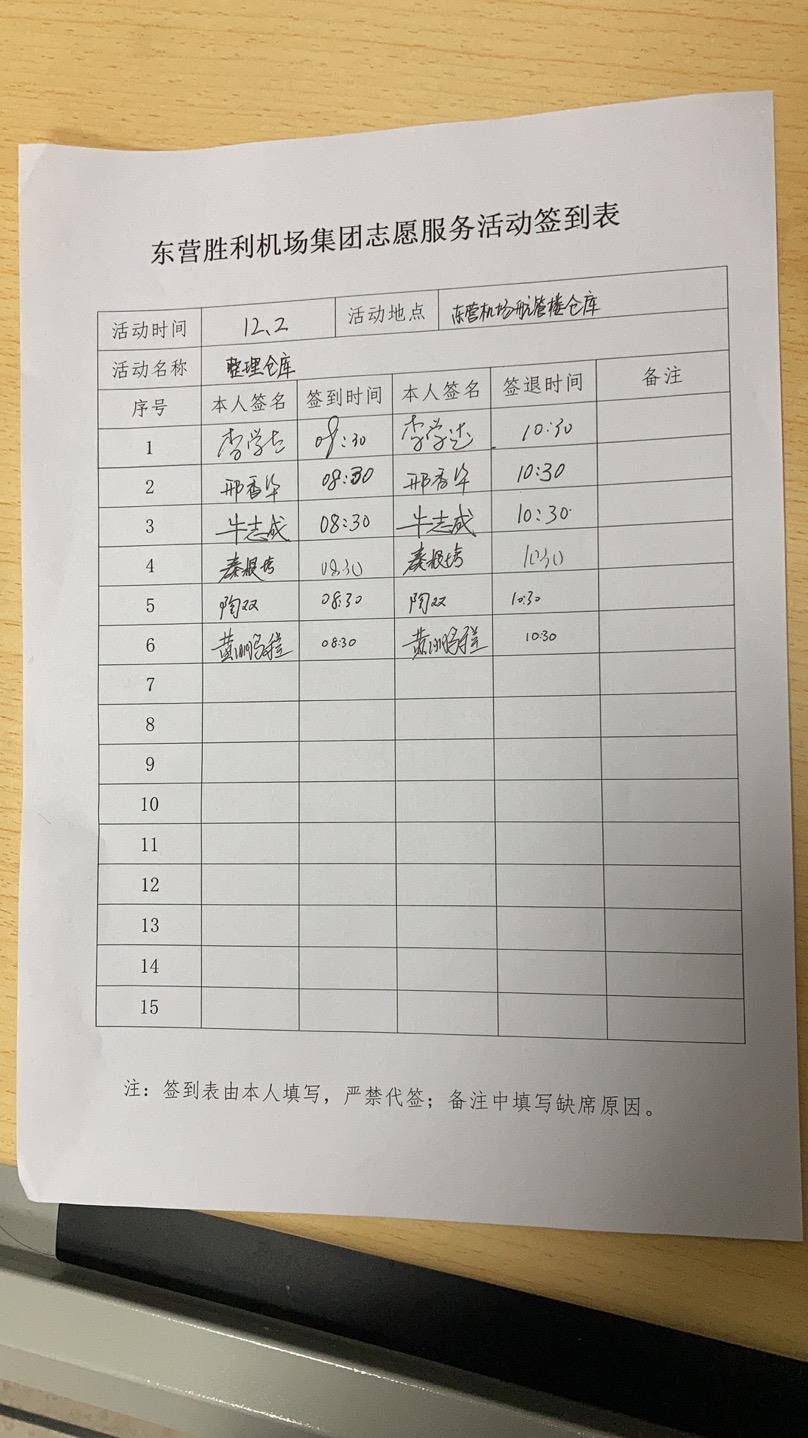 东营胜利机场集团志愿服务活动签到表
活动时间 12.2 活动地点 东营机场航管楼仓库
活动名称 整理仓库
序号 本人签名 签到时间 本人签名 签退时间 备注
1 李学志 08:30 李学达 10:30
2 邢香华 08:30 邢香华 10:30
3 牛志成 08:30 牛志成 10:30
4 08:30 10:30
5 陶双 08:30 陶双 10:30
6 08:30 10:30
7
8
9
10
11
12
13
14
15
注：签到表由本人填写，严禁代签；备注中填写缺席原因。